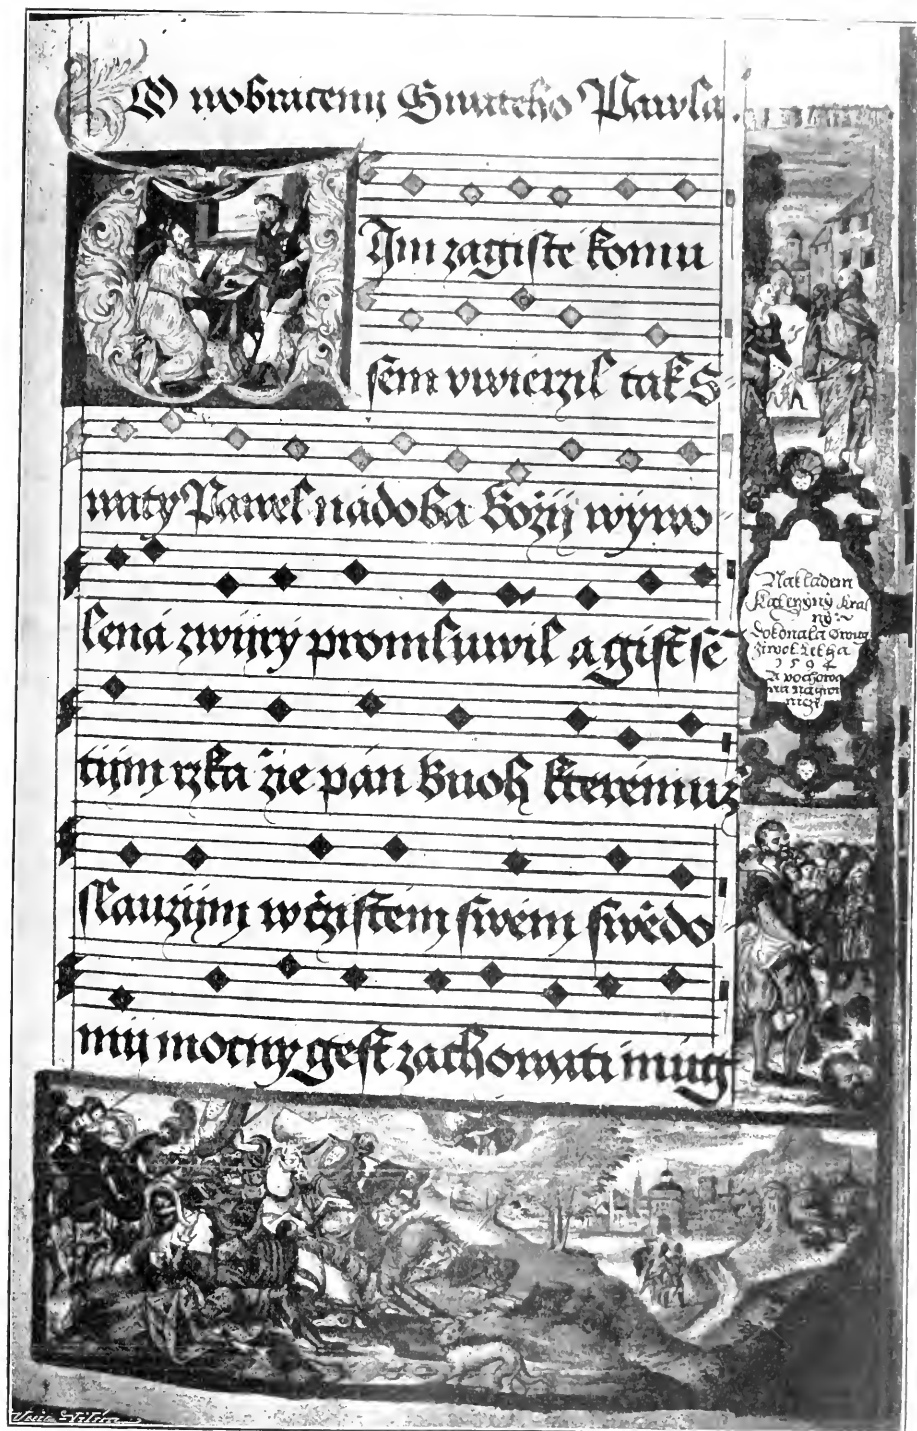 O wobráceny Swateho Pawla.
Wjm zagisté komu
sem vwierzil tak S
waty Pawel nádoba Božij wýwo
lená zwijry promluwil a gist se
tijm rzka že pán Buoh kterémuž
slaužijm w čzistém swém swědo
mij mocny gest zachowati mug
Nakladem
Kateržyny Kral
ny
Dokonala Swug
žiwot Létha
1594
A pochowa
na